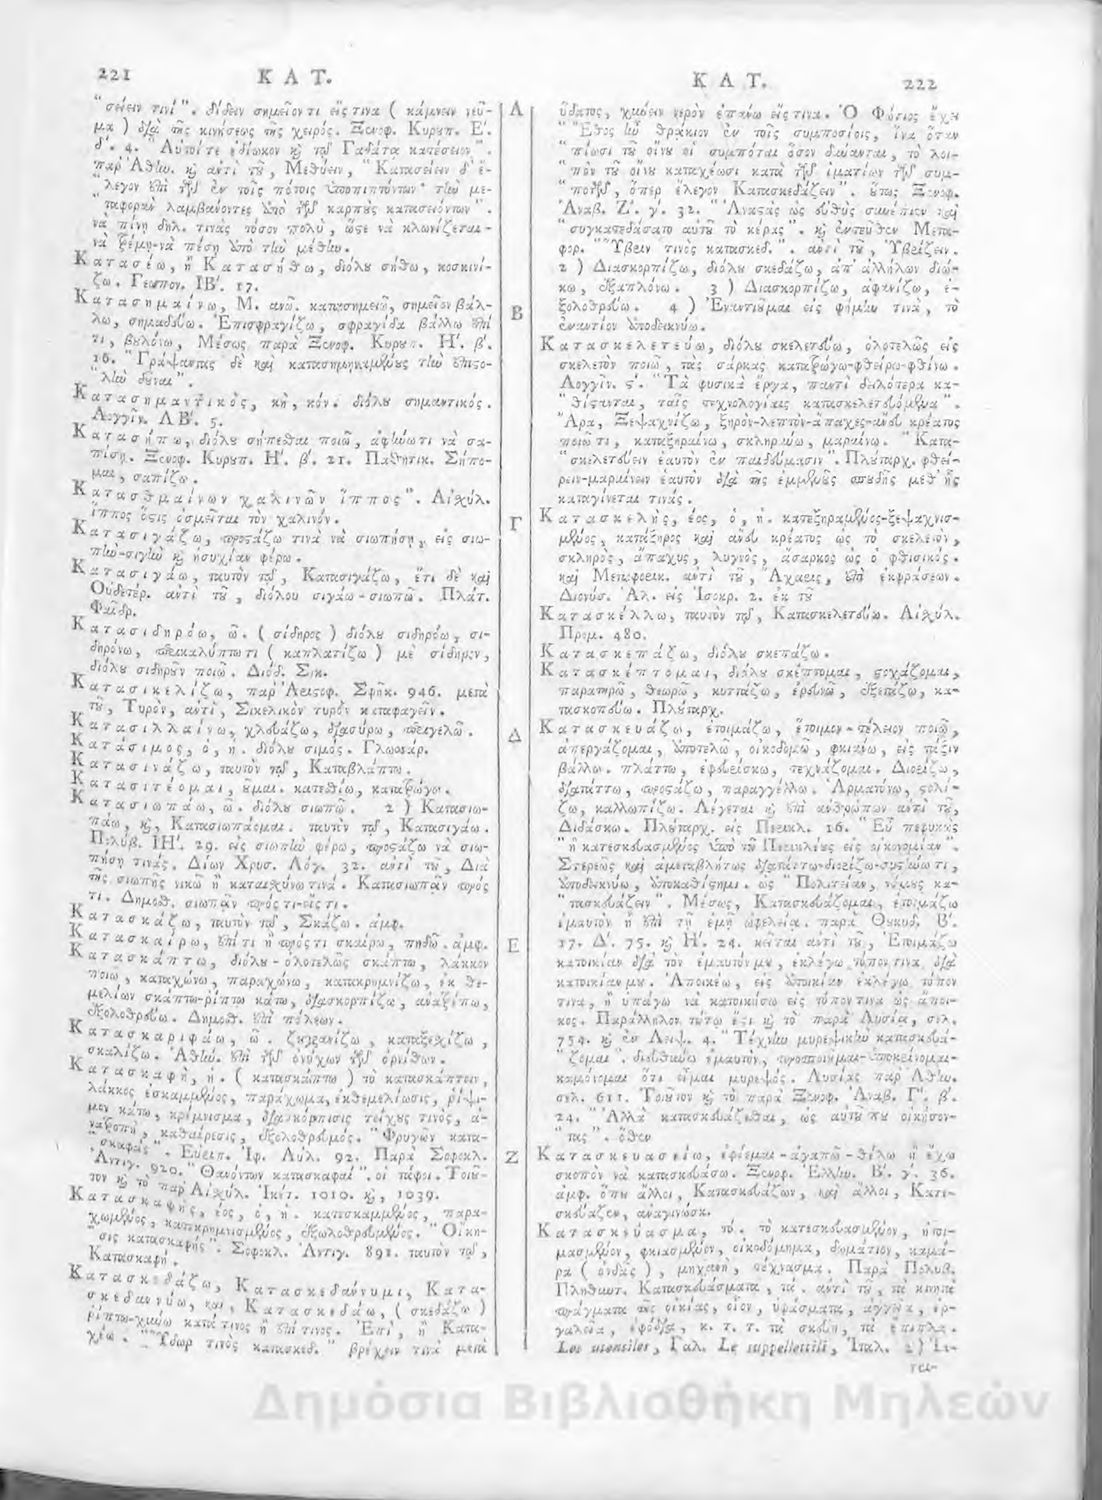 221 Κ Α Τ.
"σείειν τινί". δίδειν σημεῖόν τι εἴς τινα ( κάμνειν νεῦ-
μα ) διὰ τῆς κινήσεως τῆς χειρός. Ξενοφ. Κυρυπ. Ε΄.
δ΄. 4. "Αὐτοί τε ἐδίωκον καὶ τῷ Γαδάτα κατέσειον".
παρ' Ἀθην. καὶ ἀντὶ τοῦ, Μεθύειν, "Κατασείειν δ' ἔ-
"λεγον ἐπὶ τῶν ἐν τοῖς πότοις ὑποπιπτόντων· τὴν με-
"ταφορὰν λαμβάνοντες ἀπὸ τῶν καρποὺς κατασειόντων".
νὰ πίνῃ δηλ. τινὰς τόσον πολύ, ὥστε νὰ κλωνίζεται-
νὰ τρέμῃ-νὰ πέσῃ ἀπὸ τὴν μέθην.
Κατασέω, ἢ Κατασήθω, διόλου σήθω, κοσκινί-
ζω. Γεωπον. ΙΒ΄. 17.
Κατασημαίνω, Μ. ανῶ. κατασημειῶ, σημεῖον βάλ-
λω, σημαδεύω. Ἐπισφραγίζω, σφραγίδα βάλλω ἐπί
τι, βουλόνω, Μέσως παρὰ Ξενοφ. Κυρυπ. Η΄. β΄.
16. "Γράψαντας δὲ καὶ κατασημηναμένους τὴν ἐπιστο-
"λὴν δοῦναι".
Κατασημαντικὸς, κὴ, κόν. διόλου σημαντικός.
Λογγῖν. ΛΒ΄. 5.
Κατασήπω, διόλου σήπεσθαι ποιῶ, ἀφίνω τι νὰ σα-
πίσῃ. Ξενοφ. Κυρυπ. Η΄. β΄. 21. Παθητικ. Σήπο-
μαι, σαπίζω.
Κατασθμαίνων χαλινῶν ἵππος". Αἰσχύλ.
ἵππος ὅστις ὀσμεῖται τὸν χαλινόν.
Κατασιγάζω, προστάζω τινὰ νὰ σιωπήσῃ, εἰς σιω-
πὴν-σιγὴν καὶ ἡσυχίαν φέρω.
Κατασιγάω, ταυτὸν τῷ, Κατασιγάζω, ἔτι δὲ καὶ
Οὐδετέρ. αντὶ τοῦ, διόλου σιγάω-σιωπῶ. Πλάτ.
Φαῖδρ.
Κατασιδηρόω, ῶ. ( σίδηρος ) διόλου σιδηρόω, σι-
δηρόνω, περικαλύπτω τι ( καπλατίζω ) μὲ σίδηρον,
διόλου σιδηροῦν ποιῶ. Διόδ. Σικ.
Κατασικελίζω, παρ' Ἀριστοφ. Σφηκ. 946. μετὰ
τοῦ, Τυρὸν, αντὶ, Σικελικὸν τυρὸν καταφαγεῖν.
Κατασιλλαίνω, χλευάζω, διασύρω, περιγελῶ.
Κατάσιμος, ὁ, ἡ. διόλου σιμός. Γλωσσάρ.
Κατασινάζω, ταυτὸν τῷ, Καταβλάπτω.
Κατασιτέομαι, οῦμαι. κατεσθίω, κατατρώγω.
Κατασιωπάω, ῶ. διόλου σιωπῶ. 2 ) Κατασιω-
πάω, καὶ, Κατασιωπάομαι. ταυτὸν τῷ, Κατασιγάω.
Πολύβ. ΙΗ΄. 29. εἰς σιωπὴν φέρω, προστάζω νὰ σιω-
πήσῃ τινάς. Δίων Χρυσ. Λόγ. 32. αντὶ τοῦ, Διὰ
τῆς σιωπῆς νικῶ ἢ καταισχύνω τινά. Κατασιωπᾷν πρός
τι. Δημοσθ. σιωπᾷν πρός τι-εἴς τι.
Κατασκάζω, ταυτὸν τῷ, Σκάζω. ἀμφ.
Κατασκαίρω, ἐπί τι ἢ πρός τι σκαίρω, πηδῶ. ἀμφ.
Κατασκάπτω, διόλου-ὁλοτελῶς σκάπτω, λάκκον
ποιῶ, καταχόνω, παραχόνω, κατακρημνίζω, ἐκ θε-
μελίων σκάπτω-ρίπτω κάτω, διασκορπίζω, ἀνατρέπω,
ἐξολοθρεύω. Δημοσθ. ἐπὶ πόλεων.
Κατασκαριφάω, ῶ. ζωγραφίζω, κατασχίζω,
σκαλίζω. Ἀθην. ἐπὶ τῶν ὀνύχων τῶν ὀρνίθων.
Κατασκαφὴ, ἡ. ( κατασκάπτω ) τὸ κατασκάπτειν,
λάκκος ἐσκαμμένος, παράχωμα, ἐκθεμελίωσις, ρίψι-
μον κάτω, κρήμνισμα, διασκόρπισις τείχους τινὸς, ἀ-
νατροπὴ, καθαίρεσις, ἐξολοθρευμός. "Φρυγῶν κατα-
"σκαφαῖς". Εὐριπ. Ἰφ. Αὐλ. 92. Παρὰ Σοφοκλ.
Ἀντιγ. 920. "Θανόντων κατασκαφαί". οἱ τάφοι. Τοιοῦ-
τον καὶ τὸ παρ' Αἰσχύλ. Ἱκέτ. 1010. καὶ, 1039.
Κατασκαφὴς, έος, ὁ, ἡ. κατεσκαμμένος, παρα-
χωμένος, κατακρημνισμένος, ἐξωλοθρευμένος. "Οἴκη-
"σις κατασκαφής". Σοφοκλ. Ἀντιγ. 891. ταυτὸν τῷ,
Κατασκαφή.
Κατασκεδάζω, Κατασκεδάννυμι, Κατα-
σκεδαννύω, καὶ, Κατασκεδάω, ( σκεδάζω )
ρίπτω-χύνω κατά τινος ἢ ἐπί τινος. Ἐπὶ, ἢ Κατα-
χέω. "Ὕδωρ τινὸς κατασκεδ." βρέχειν τινὰ μετὰ
Α
Β
Γ
Δ
Ε
Ζ
Κ Α Τ. 222
ὕδατος, χύνειν νερὸν ἐπάνω εἴς τινα. Ὁ Φώτιος ἔχει
"Ἔθος ἦν Θράκιον ἐν τοῖς συμποσίοις, ἵνα ὅταν
"πίωσι τοῦ οἴνου οἱ συμπόται ὅσον δύνανται, τὸ λοι-
"πὸν τοῦ οἴνου καταχέωσι κατὰ τῶν ἱματίων τῶν συμ-
"ποτῶν, ὅπερ ἔλεγον Κατασκεδάζειν". οὕτως Ξενοφ.
Ἀναβ. Ζ΄. γ΄. 32. "Ἀναστὰς ὡς Σεύθης συνέπιεν καὶ
"συγκατεδάσατο αὐτῷ τὸ κέρας". καὶ ἐντεῦθεν Μετα-
φορ. "Ὕβριν τινὸς κατασκεδ." αντὶ τοῦ, Ὑβρίζειν.
2 ) Διασκορπίζω, διόλου σκεδάζω, ἀπ' ἀλλήλων διώ-
κω, ἐξαπλόνω. 3 ) Διασκορπίζω, ἀφανίζω, ἐ-
ξολοθρεύω. 4 ) Ἐναντιοῦμαι εἰς φήμην τινὰ, τὸ
ἐναντίον ἀποδεικνύω.
Κατασκελετεύω, διόλου σκελετεύω, ὁλοτελῶς εἰς
σκελετὸν ποιῶ, τὰς σάρκας κατατρώγω-φθείρω-φθίνω.
Λογγῖν. ς΄. "Τὰ φυσικὰ ἔργα, παντὶ δειλότερα κα-
"θίστανται, ταῖς τεχνολογίαις κατασκελετευόμενα".
Ἄρα, Ξεψαχνίζω, ξηρὸν-λεπτὸν-ἄπαχες-ἄνευ κρέατος
ποιῶ τι, καταξηραίνω, σκληρύνω, μαραίνω. "Κατα-
"σκελετεύειν ἑαυτὸν ἐν παιδεύμασιν". Πλούταρχ. φθεί-
ρειν-μαραίνειν ἑαυτὸν διὰ τῆς ἐμμόνους σπουδῆς μεθ' ἧς
καταγίνεται τινάς.
Κατασκελὴς, έος, ὁ, ἡ. κατεξηραμένος-ξεψαχνισ-
μένος, κατάξηρος καὶ ἄνευ κρέατος ὡς τὸ σκέλεθρον,
σκληρὸς, ἄπαχυς, λιγνὸς, ἄσαρκος ὡς ὁ φθισικός.
καὶ Μεταφορικ. αντὶ τοῦ, Ἄχαρις, ἐπὶ ἐκφράσεων.
Διονύσ. Ἀλ. εἰς Ἰσοκρ. 2. ἐκ τοῦ
Κατασκέλλω, ταυτὸν τῷ, Κατασκελετεύω. Αἰσχύλ.
Προμ. 480.
Κατασκεπάζω, διόλου σκεπάζω.
Κατασκέπτομαι, διόλου σκέπτομαι, στοχάζομαι,
παρατηρῶ, θεωρῶ, κυττάζω, ἐρευνῶ, ἐξετάζω, κα-
τασκοπεύω. Πλούταρχ.
Κατασκευάζω, ἑτοιμάζω, ἕτοιμον-τέλειον ποιῶ,
ἀπεργάζομαι, ἀποτελῶ, οἰκοδομῶ, φκιάνω, εἰς τάξιν
βάλλω. πλάττω, ἐφευρίσκω, τεχνάζομαι. Διορίζω,
διατάττω, προστάζω, παραγγέλλω. Ἀρματόνω, στολί-
ζω, καλλωπίζω. Λέγεται καὶ ἐπὶ ἀνθρώπων αντὶ τοῦ,
Διδάσκω. Πλούταρχ. εἰς Περικλ. 16. "Εὖ πεφυκὼς
"ἢ κατεσκευασμένος ὑπὸ τοῦ Περικλέους εἰς οἰκονομίαν".
Στερεῶς καὶ ἀμεταβλήτως διατάττω-διορίζω-συσταίνω τι,
ἀποδεικνύω, ἀποκαθίστημι. ὡς "Πολιτείαν, νόμους κα-
"τασκευάζειν". Μέσως, Κατασκευάζομαι, ἑτοιμάζω
ἐμαυτὸν ἢ ἐπὶ τῇ ἐμῇ ὠφελείᾳ. παρὰ Θουκυδ. Β΄.
17. Δ΄. 75. καὶ Η΄. 24. κεῖται αντὶ τοῦ, Ἑτοιμάζω
κατοικίαν διὰ τὸν ἐμαυτόν μου, ἐκλέγω τόπον τινα διὰ
κατοικίαν μου. Ἀποικέω, εἰς ἀποικίαν ἐκλέγω τόπον
τινα, ἢ ὑπάγω νὰ κατοικήσω εἰς τόπον τινα ὡς ἄποι-
κος. Παράλληλον τούτῳ ἐστὶ καὶ τὸ παρὰ Λυσίᾳ, σελ.
754. καὶ ἐν Λειψ. 4. "Τέχνην μυρεψικὴν κατασκευά-
"ζομαι". διευθύνω ἐμαυτὸν, προσποιοῦμαι-ὑποκρίνομαι-
καμόνομαι ὅτι εἶμαι μυρεψός. Λυσίας παρ' Ἀθην.
σελ. 611. Τοιοῦτον καὶ τὸ παρὰ Ξενοφ. Ἀναβ. Γ΄. β΄.
24. "Ἀλλὰ κατασκευάζεσθαι, ὡς αὐτοῦ που οἰκήσον-
"τας". ὅθεν
Κατασκευασείω, ἐφίεμαι-ἀγαπῶ-θέλω ἢ ἔχω
σκοπὸν νὰ κατασκευάσω. Ξενοφ. Ἑλλην. Β΄. γ΄. 36.
ἀμφ. ὅπου ἄλλοι, Κατασκευάζων, καὶ ἄλλοι, Κατε-
σκεύαζεν, ἀναγινώσκ.
Κατασκεύασμα, τό. τὸ κατεσκευασμένον, ἡτοι-
μασμένον, φκιασμένον, οἰκοδόμημα, δωμάτιον, καμά-
ρα ( ὀνδάς ), μηχανὴ, τέχνασμα. Παρὰ Πολυβ.
Πληθυντ. Κατασκευάσματα, τά. αντὶ τοῦ, τὰ κινητὰ
πράγματα τῆς οἰκίας, οἷον, ὑφάσματα, ἀγγεῖα, ἐρ-
γαλεῖα, ἐφόδια, κ. τ. τ. τὰ σκεύη, τὰ ἔπιπλα.
Les utensiles, Γαλ. Le suppellettili, Ἰταλ. 2 ) Στ-
ρεω-
Δημόσια Βιβλιοθήκη Μηλεών